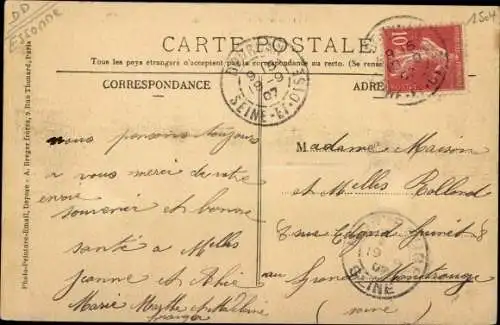 DD
ESCONDE
1504
CARTE POSTALE
Tous les pays étrangers n'acceptent pas la correspondance au recto. (Se rense
CORRESPONDANCE
ADRE
10
SEINE-ET-OISE
Photo-Peinture-Email, Dépose - A. Breger frères, 9 Rue Thénard, Paris
nous pensons toujours
à vous merci de votre
envoi
souvenir et bonne
santé à Melles
Jeanne et
Marie Marthe et Madeleine
Madame Maison
et Melles Rolland
8 rue Edgard Quinet 8
au Grand Montrouge
(Seine)
SEINE